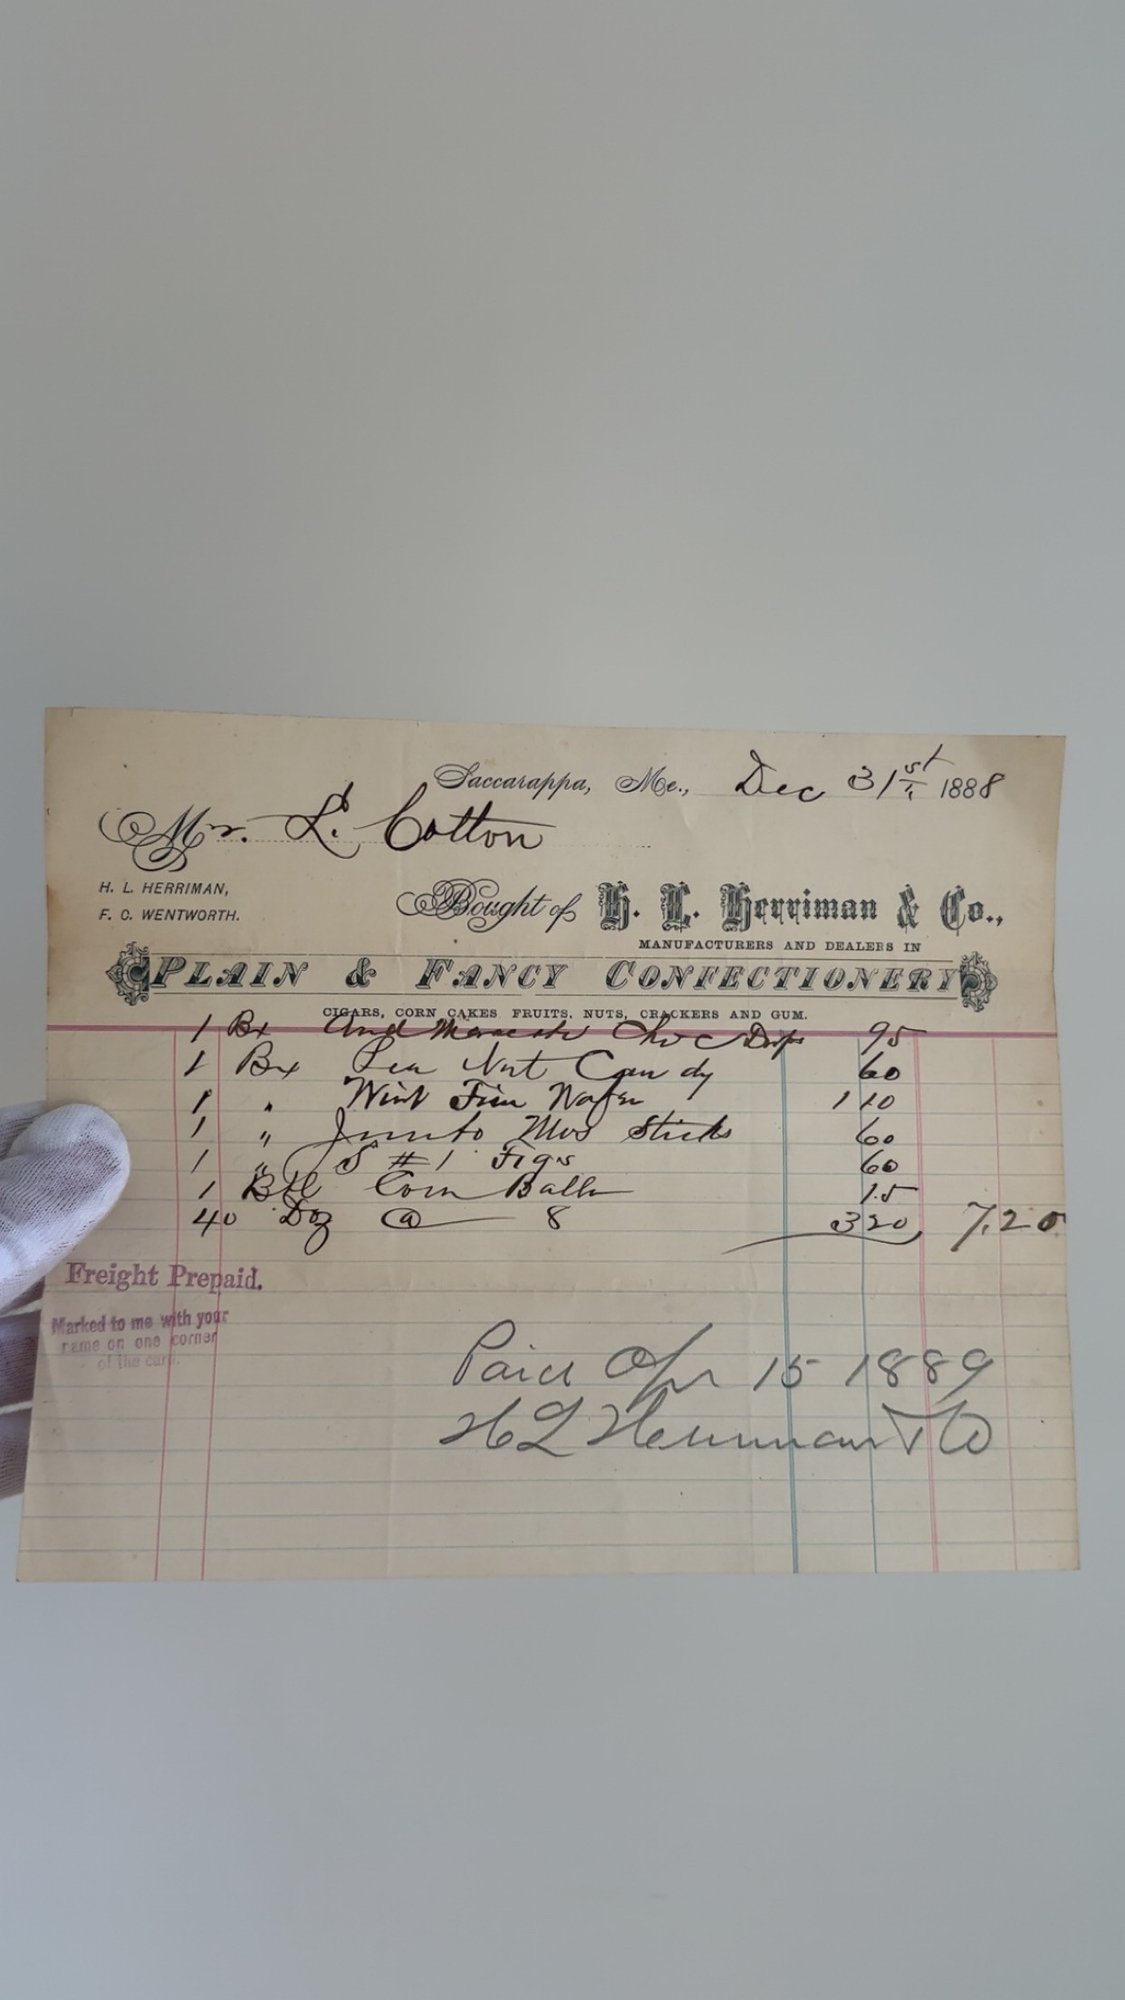 Saccarappa, Me., Dec 31st 1888
Mr. L. Cotton
H. L. HERRIMAN,
F. C. WENTWORTH.
Bought of H. L. Herriman & Co.,
MANUFACTURERS AND DEALERS IN
PLAIN & FANCY CONFECTIONERY
CIGARS, CORN CAKES FRUITS, NUTS, CRACKERS AND GUM.
1 Bx Choc Drops 95
1 Bx Pea Nut Candy 60
1 " Wint 1 10
1 " Jumbo Mos Sticks 60
1 " S # 1 Figs 60
1 Bbl Corn Balls 15
40 Doz @ 8 3 20 7.20
Freight Prepaid.
Marked to me with your
name on one corner
of the card.
Paid Apr 15 1889
H L Herriman & Co